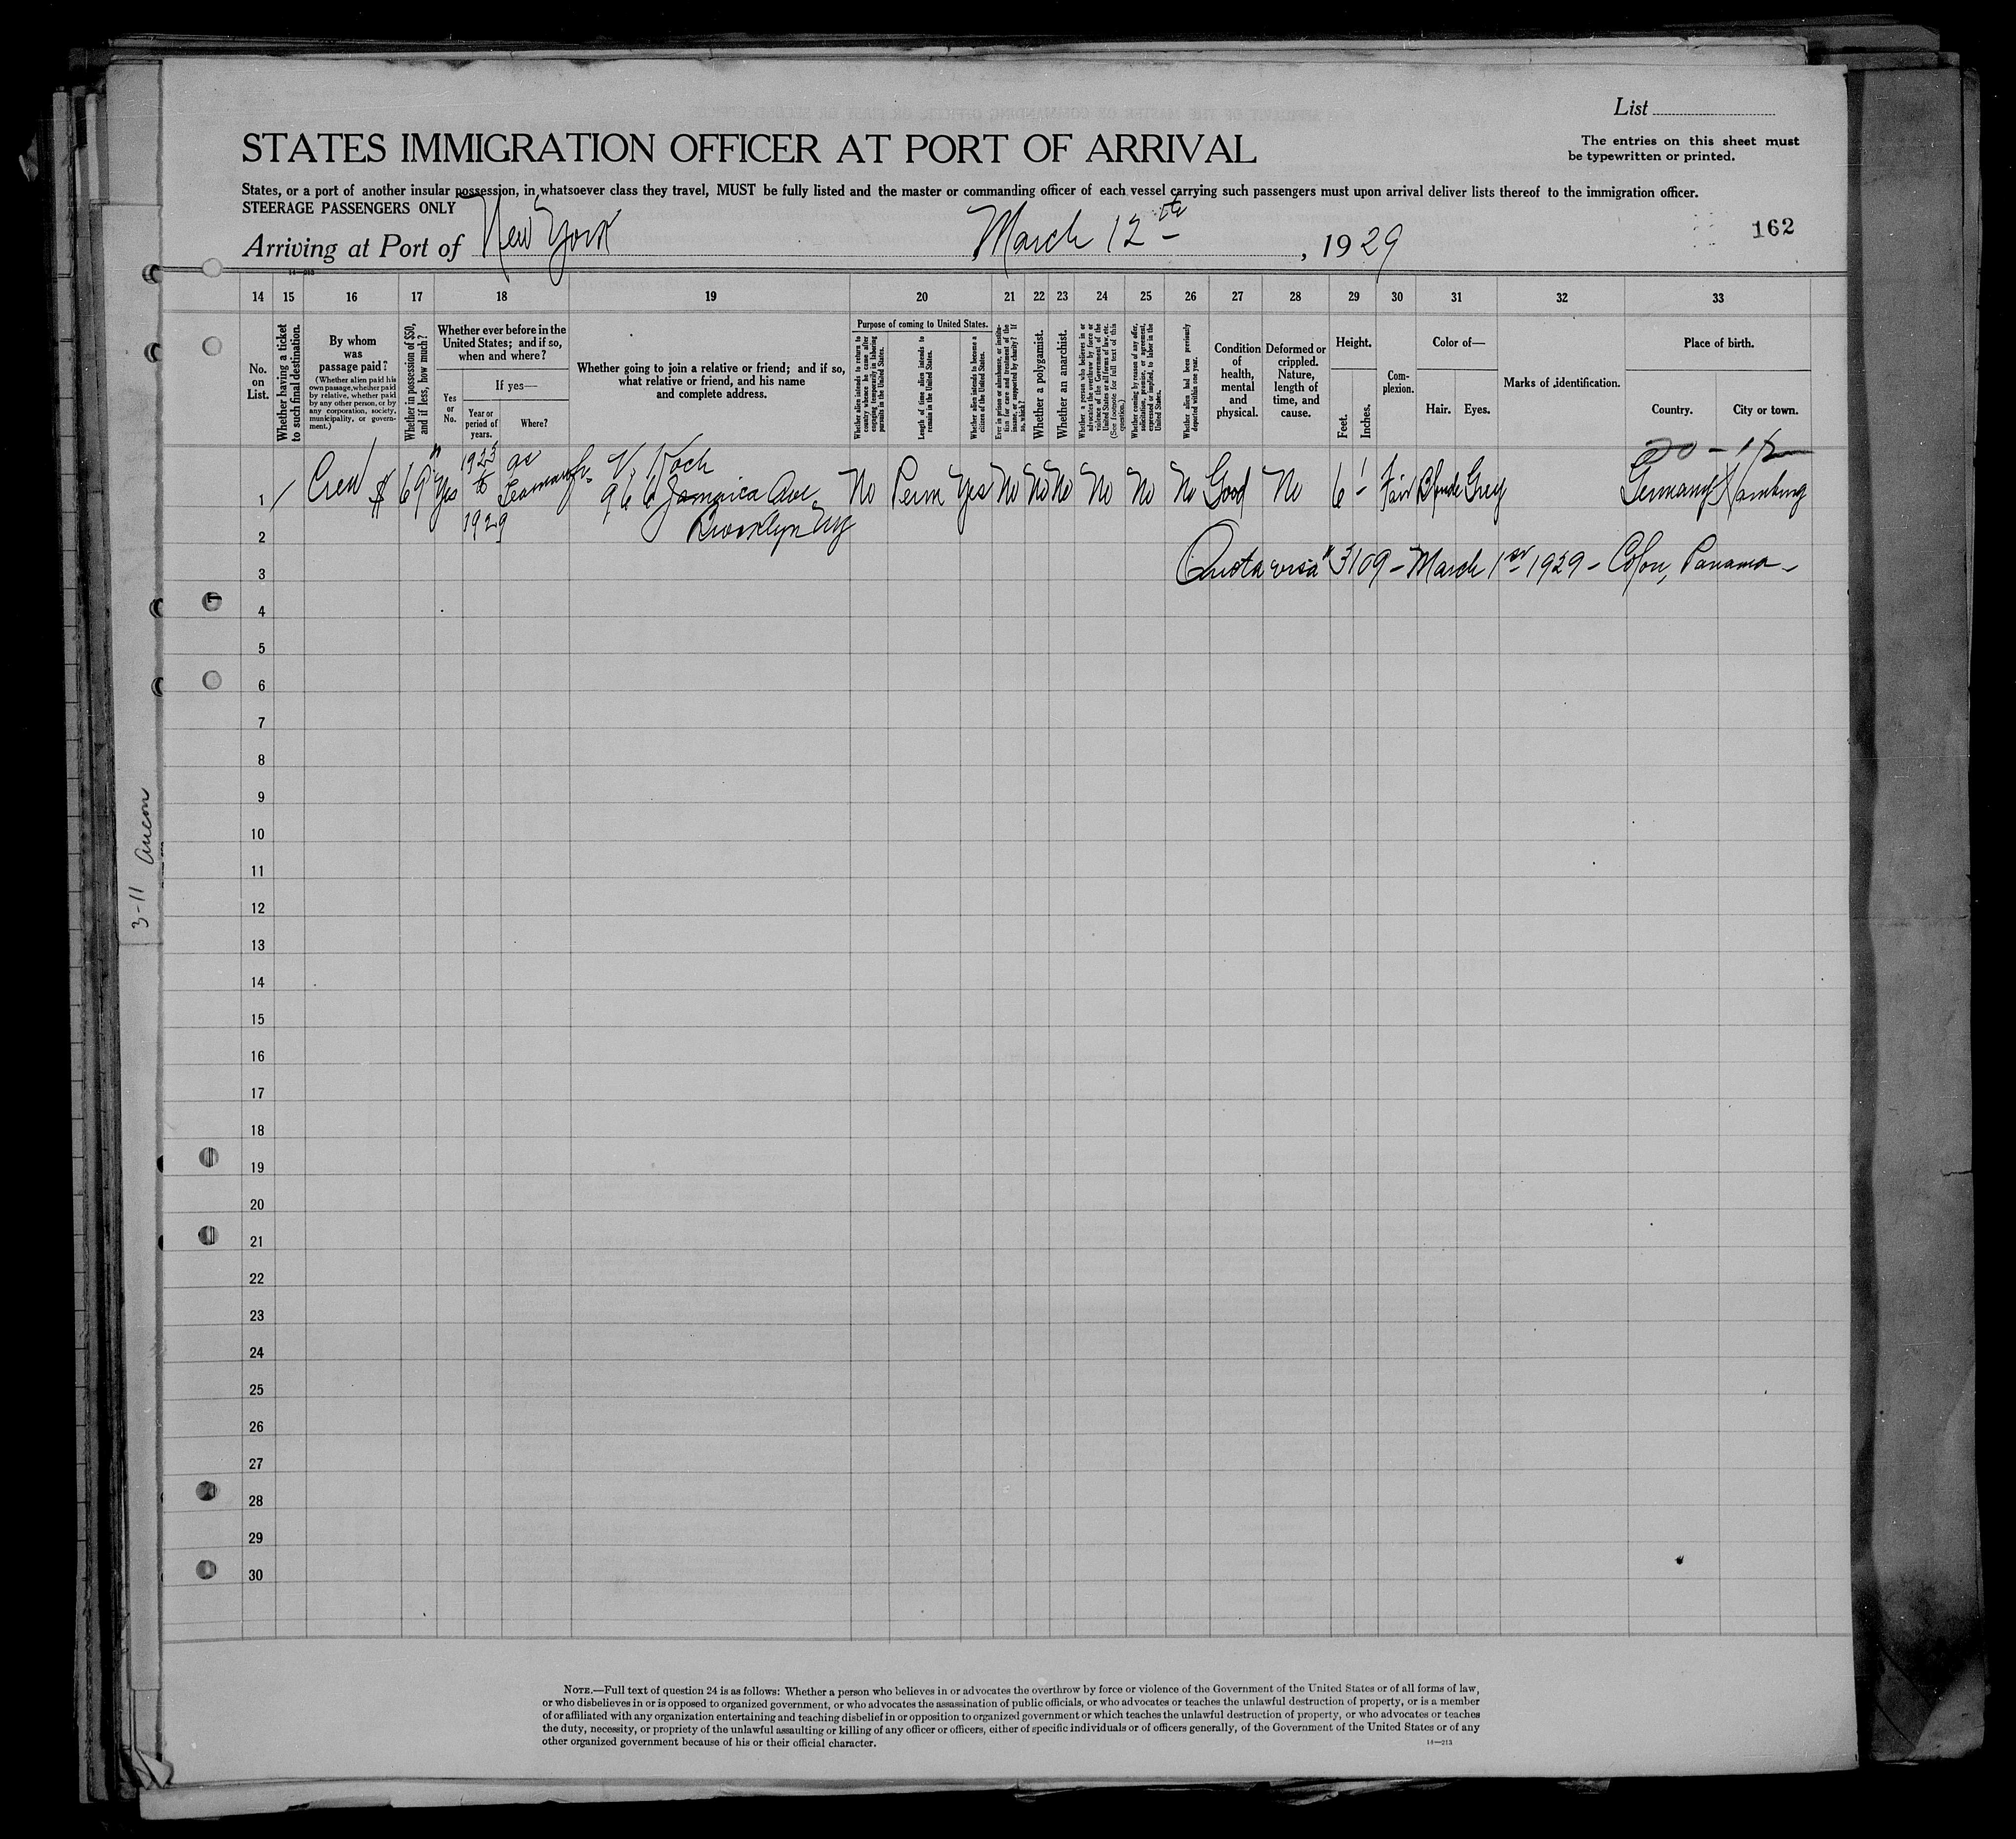 List
STATES IMMIGRATION OFFICER AT PORT OF ARRIVAL
The entries on this sheet must
be typewritten or printed.
States, or a port of another insular possession, in whatsoever class they travel, MUST be fully listed and the master or commanding officer of each vessel carrying such passengers must upon arrival deliver lists thereof to the immigration officer.
STEERAGE PASSENGERS ONLY
Arriving at Port of New York March 12th, 1929
162
14—213
14 15 16 17 18 19 20 21 22 23 24 25 26 27 28 29 30 31 32 33
No. on List.
Whether having a ticket to such final destination.
By whom was passage paid?
(Whether alien paid his own passage, whether paid by relative, whether paid by any other person, or by any corporation, society, municipality, or government.)
Whether in possession of $50, and if less, how much?
Whether ever before in the United States; and if so, when and where?
Yes or No.
If yes—
Year or period of years.
Where?
Whether going to join a relative or friend; and if so, what relative or friend, and his name and complete address.
Purpose of coming to United States.
Whether alien intends to return to country whence he came after engaging temporarily in laboring pursuits in the United States.
Length of time alien intends to remain in the United States.
Whether alien intends to become a citizen of the United States.
Ever in prison or almshouse, or institution for care and treatment of the insane, or supported by charity? If so, which?
Whether a polygamist.
Whether an anarchist.
Whether a person who believes in or advocates the overthrow by force or violence of the Government of the United States or all forms of law, etc. (See footnote for full text of this question.)
Whether coming by reason of any offer, solicitation, promise, or agreement, expressed or implied, to labor in the United States.
Whether alien had been previously deported within one year.
Condition of health, mental and physical.
Deformed or crippled. Nature, length of time, and cause.
Height.
Feet. Inches.
Complexion.
Color of—
Hair. Eyes.
Marks of identification.
Place of birth.
Country. City or town.
1 Crew $69 Yes 1923 to 1929 as Seaman V. Koch
966 Jamaica Ave
Brooklyn NY
No Perm Yes No No No No No No Good No 6 1 Fair Blonde Grey Germany Hamburg
2
3 Quota visa #3109 - March 1st 1929 - Colon, Panama -
4
5
6
7
8
9
10
11
12
13
14
15
16
17
18
19
20
21
22
23
24
25
26
27
28
29
30
3-11 Ancon
NOTE.—Full text of question 24 is as follows: Whether a person who believes in or advocates the overthrow by force or violence of the Government of the United States or of all forms of law,
or who disbelieves in or is opposed to organized government, or who advocates the assassination of public officials, or who advocates or teaches the unlawful destruction of property, or is a member
of or affiliated with any organization entertaining and teaching disbelief in or opposition to organized government or which teaches the unlawful destruction of property, or who advocates or teaches
the duty, necessity, or propriety of the unlawful assaulting or killing of any officer or officers, either of specific individuals or of officers generally, of the Government of the United States or of any
other organized government because of his or their official character.
14—213